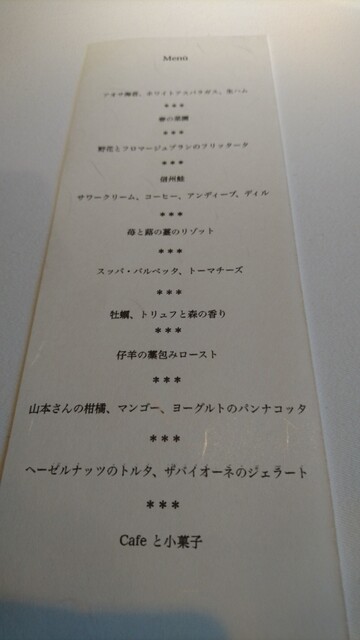 Menu
アオサ海苔、ホワイトアスパラガス、生ハム
***
春の菜園
***
野花とフロマージュブランのフリッタータ
***
信州鮭
サワークリーム、コーヒー、アンディーブ、ディル
***
苺と蕗の薹のリゾット
***
スッパ・バルベッタ、トーマチーズ
***
牡蠣、トリュフと森の香り
***
仔羊の藁包みロースト
***
山本さんの柑橘、マンゴー、ヨーグルトのパンナコッタ
***
ヘーゼルナッツのトルタ、ザバイオーネのジェラート
***
Cafe と小菓子